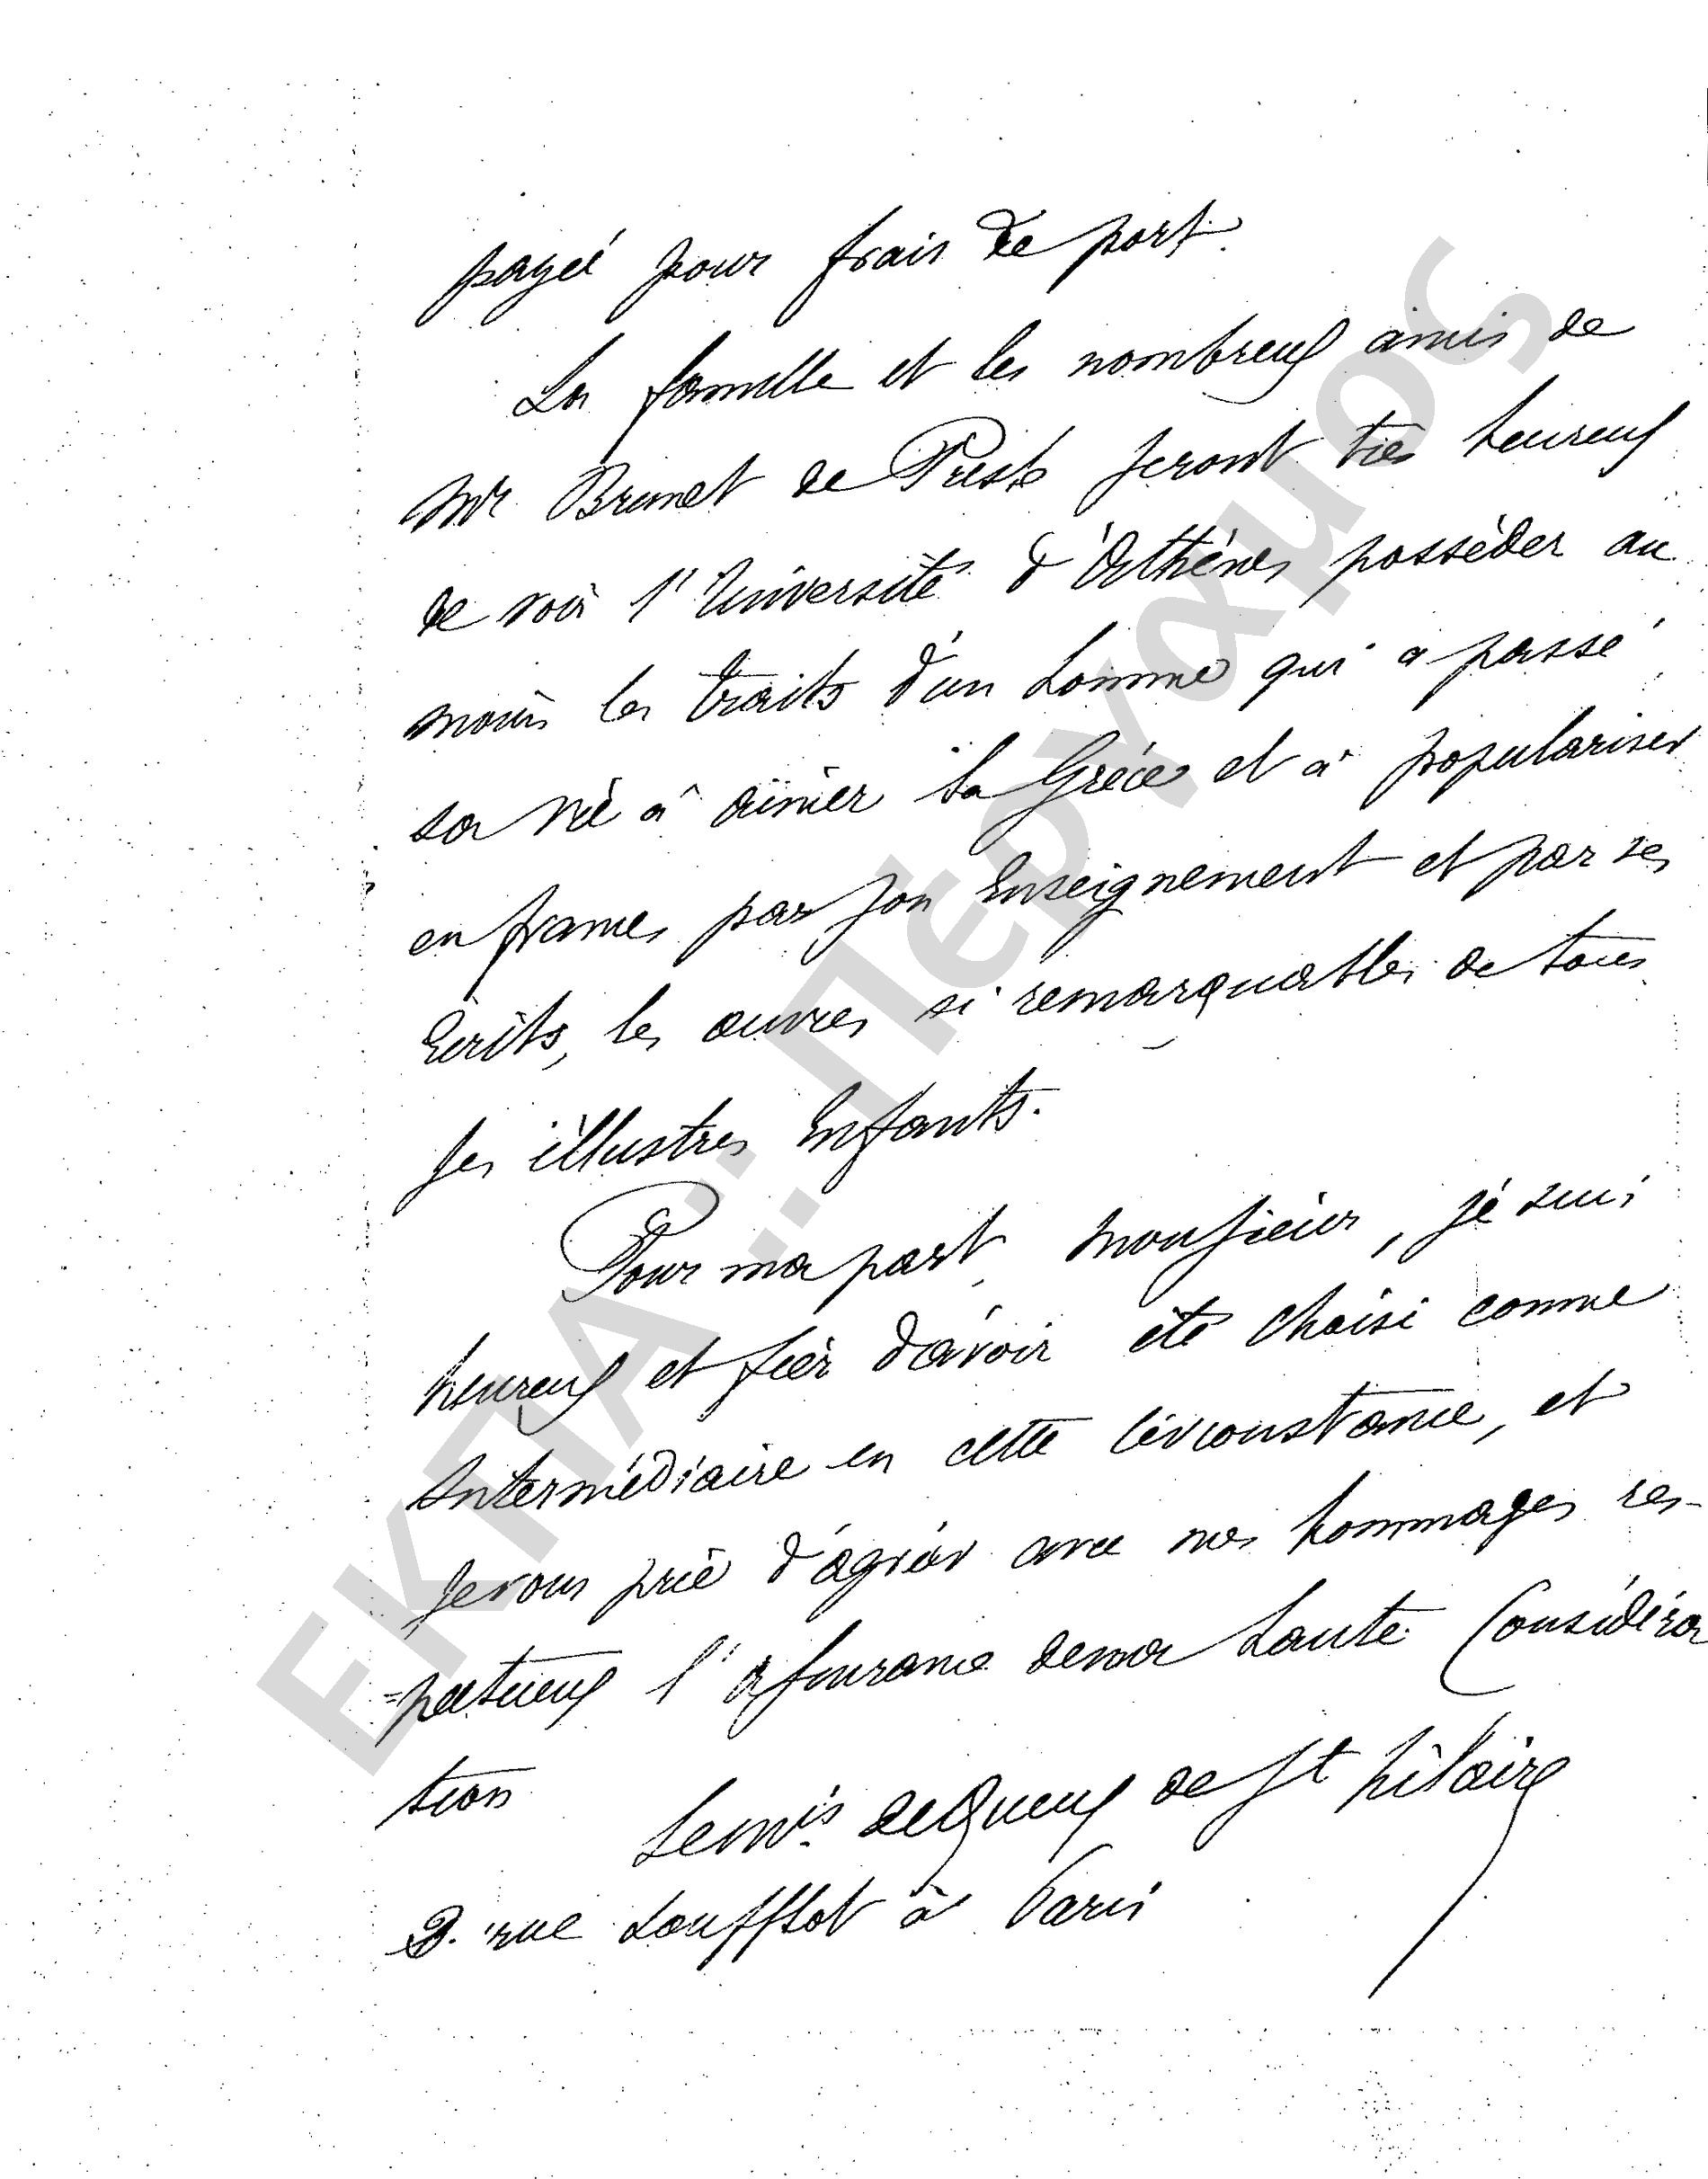 payé pour frais de port.
La famille et les nombreux amis de
Mr Brunet de Presle seront très heureux
de voir l'Université d'Athènes posséder au
moins les traits d'un homme qui a passé
sa vie à aimer la Grèce et à populariser
en france, par son Enseignement et par ses
Ecrits, les œuvres si remarquables de tous
ses illustres Enfants.
Pour ma part, Monsieur, je suis
heureux et fier d'avoir été choisi comme
Intermédiaire en cette circonstance, et
je vous prie d'agréer avec mes hommages res-
=pectueux l'assurance de ma haute Considéra
tion
Le Mis de Queux de St hilaire
2. rue Soufflot à Paris
ΕΚΠΑ::Πέργαμος